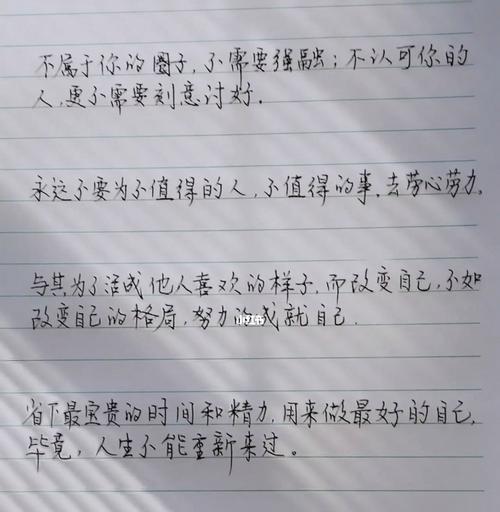 不属于你的圈子，不需要强融；不认可你的
人，更不需要刻意讨好.
永远不要为不值得的人，不值得的事.去劳心劳力。
与其为了活成他人喜欢的样子.而改变自己，不如
改变自己的格局，努力的成就自己.
小红书
省下最宝贵的时间和精力，用来做最好的自己，
毕竟，人生不能重新来过。